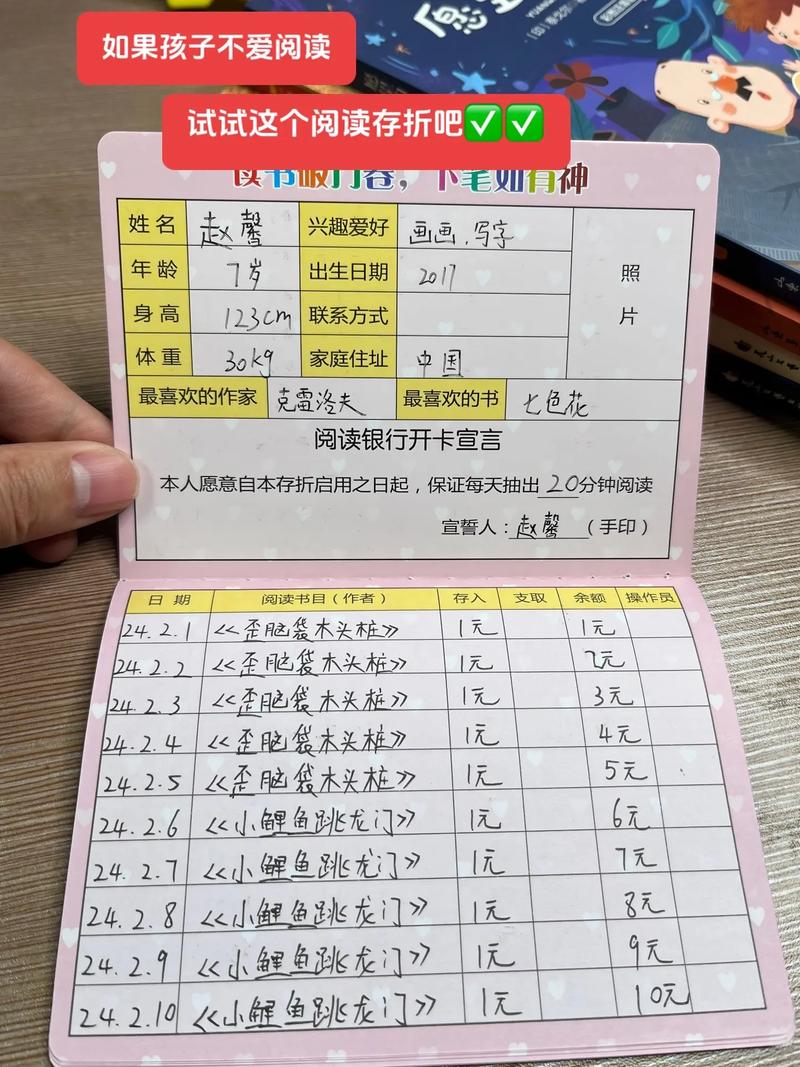 如果孩子不爱阅读
试试这个阅读存折吧✅✅
读书破万卷，下笔如有神
姓名 赵馨 兴趣爱好 画画、写字 照片
年龄 7岁 出生日期 2017
身高 123cm 联系方式
体重 30kg 家庭住址 中国
最喜欢的作家 克雷洛夫 最喜欢的书 七色花
阅读银行开卡宣言
本人愿意自本存折启用之日起，保证每天抽出20分钟阅读
宣誓人：赵馨（手印）
日期 阅读书目（作者） 存入 支取 余额 操作员
24.2.1 《歪脑袋木头桩》 1元 1元
24.2.2 《歪脑袋木头桩》 1元 2元
24.2.3 《歪脑袋木头桩》 1元 3元
24.2.4 《歪脑袋木头桩》 1元 4元
24.2.5 《歪脑袋木头桩》 1元 5元
24.2.6 《小鲤鱼跳龙门》 1元 6元
24.2.7 《小鲤鱼跳龙门》 1元 7元
24.2.8 《小鲤鱼跳龙门》 1元 8元
24.2.9 《小鲤鱼跳龙门》 1元 9元
24.2.10 《小鲤鱼跳龙门》 1元 10元